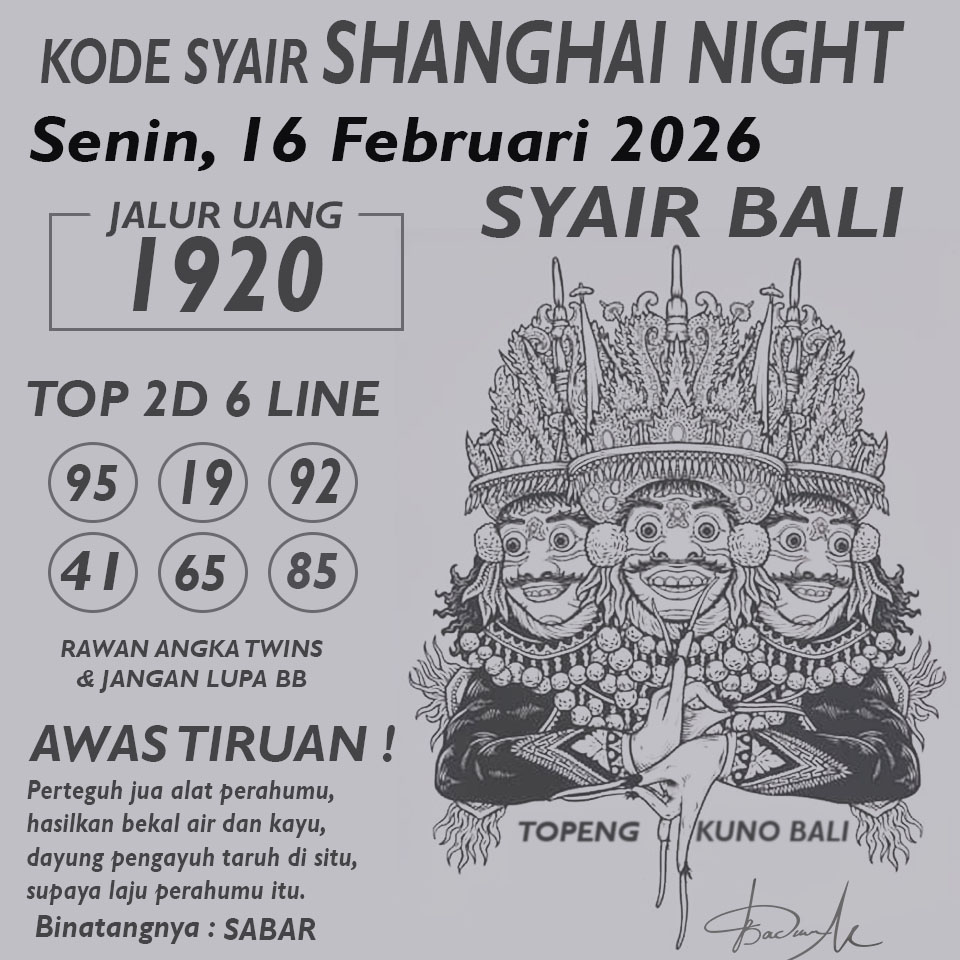 KODE SYAIR SHANGHAI NIGHT
Senin, 16 Februari 2026
SYAIR BALI
JALUR UANG
1920
TOP 2D 6 LINE
95 19 92
41 65 85
RAWAN ANGKA TWINS
& JANGAN LUPA BB
AWAS TIRUAN !
Perteguh jua alat perahumu,
hasilkan bekal air dan kayu,
dayung pengayuh taruh di situ,
supaya laju perahumu itu.
Binatangnya : SABAR
TOPENG KUNO BALI